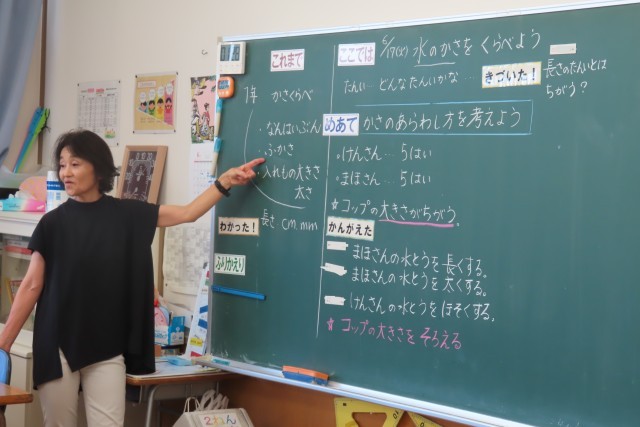 これまで
1年 かさくらべ
・なんばいぶん
・ふかさ
・入れもの大きさ
太さ
長さ cm.mm
わかった！
ふりかえり
ここでは
6/17(火) 水のかさを くらべよう
たんい… どんなたんいかな…
きづいた！
長さのたんいとは
ちがう？
めあて かさのあらわし方を考えよう
・けんさん… 5はい
・まほさん… 5はい
☆コップの大きさがちがう。
かんがえた
まほさんの水とうを長くする。
まほさんの水とうを太くする。
けんさんの水とうをほそくする。
☆コップの大きさをそろえる